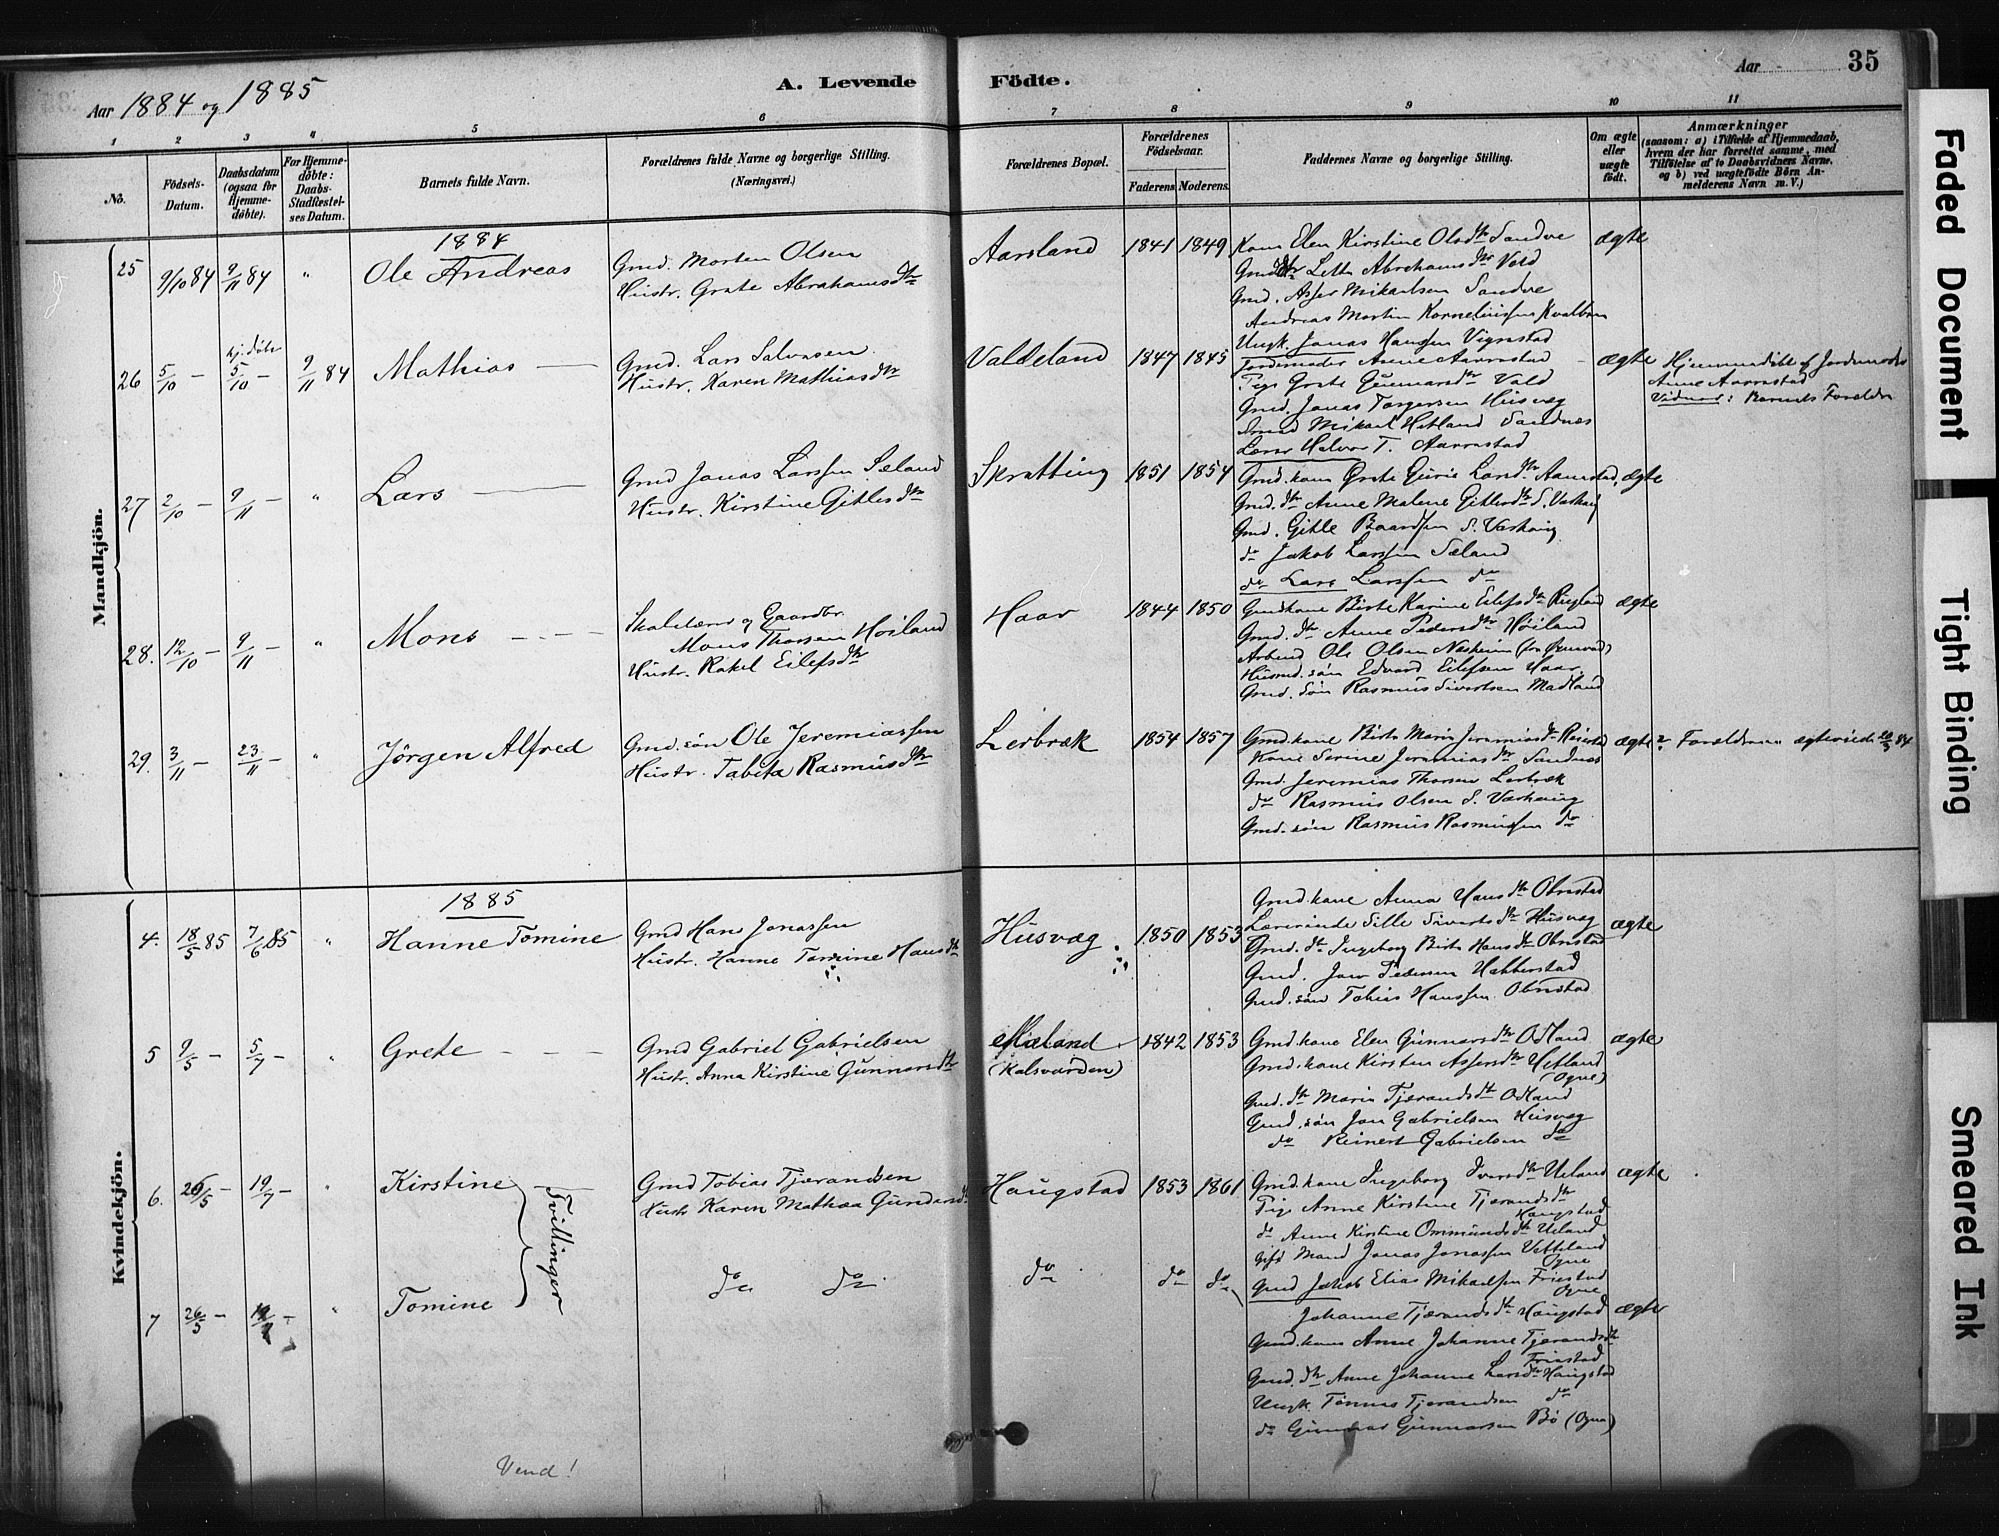 Aar 1884 og 1885
A. Levende Födte.
Aar 35
1 2 3 4 5 6 7 8 9 10 11
No.
Födsels-Datum.
Daabsdatum (ogsaa for Hjemmedöbte).
For Hjemmedöbte: Daabs-Stadfæstelses Datum.
Barnets fulde Navn.
Forældrenes fulde Navne og borgerlige Stilling. (Næringsvei.)
Forældrenes Bopæl.
Forældrenes Födselsaar.
Faderens Moderens.
Faddernes Navne og borgerlige Stilling.
Om ægte eller uægte födt.
Anmærkninger
(saasom: a) i Tilfælde af Hjemmedaab, hvem der har forrettet samme, med Tilföielse af to Daabsvidners Navne. og b) ved uægtefödte Börn Anmelderens Navn m. V.)
Mandkjön.
1884
25 9/10 84 9/11 84 " Ole Andreas
Gmd. Morten Olsen
Hustr. Grete Abrahamsdtr
Aarsland 1841 1849
Kone Elen Kirstine Olsdtr Sandve
Gmd dtr Lette Abrahamsdtr Vold
Gmd. Asser Mikaelsen Sandve
Andreas Martin Korneliussen Kvalbein
Ungk. Jonas Hansen Vigrestad
ægte
26 5/10 — hj. döbt 5/10 — 9/11 84 Mathias —
Gmd. Lars Salvesen
Hustr. Karen Mathiasdtr
Valdeland 1847 1845
Jordemoder Anne Aarrestad
Pige Grete Gunnarsdtr Vold
Gmd. Jonas Torgersen Husvæg
Mikael Hetland Sandnæs
Lærer Halvor T. Aarrestad
ægte
Hjemmedöbt af Jordemoder
Anne Aarrestad
Vidner: Barnets Forældre
27 2/10 — 9/11 — " Lars —
Gmd Jonas Larssen Sæland
Hustr. Kirstine Gitlesdtr
Skratting 1851 1854
Gmd. kone Grete Gurie Larsdtr Aarrestad
Gmd. dtr Anne Malene Gitlesdtr S. Varhaug
Gmd. Gitle Baardsen S. Varhaug
do Jakob Larssen Sæland
do Lars Larssen do
ægte
28. 12/10 — 9/11 — " Mons — — —
Skolelærer og Gaardbr.
Mons Thorsen Höiland
Hustr. Rakel Eilefsdtr
Haar 1844 1850
Gmdkone Birte Karine Eilefsdtr
Gmd. dtr Anne Pedersdtr Höiland
Arbmd Ole Olsen Næsheim
Husmd. sön Edvard Eilefsen Haar
Gmd. Sön Rasmus Sivertsen Madland
ægte
29. 3/11 — 23/11 — " Jörgen Alfred
Gmd. sön Ole Jeremiassen
Hustr. Tabita Rasmusdtr
Lerbræk 1854 1857
Gmd. kone Birte Marie Jeremiasdtr
Kone Serine Jeremiasdtr Sandnæs
Gmd. Jeremias Thorsen Lerbræk
do Rasmus Olsen S. Varhaug
Gmd. sön Rasmus Rasmussen do
ægte
Forældrene ægteviede 84
Kvindekjön.
1885
4. 18/5 85 7/6 85 " Hanne Tomine
Gmd Hans Jonassen
Hustr. Hanne Tomine Hansdtr
Husvæg 1850 1853
Gmd. kone Anna Hansdtr Obrestad
Lærerinde Sille Sivertsdtr Husvæg
Gmd. dtr Ingeborg Birte Hansdtr Obrestad
Gmd. Jon Pedersen Habberstad
Gmd. sön Tobias Hanssen Obrestad
ægte
5 9/5 — 5/7 — " Grete — — —
Gmd Gabriel Gabrielsen
Hustr. Anna Kirstine Gunnarsdtr
Mæland (Kalsvarden) 1842 1853
Gmd. kone Elen Gunnarsdtr Odland
Gmd. kone Kirsten Assersdtr Hetland (Ogne)
Gmd. dtr Marie Tjærandsdtr Odland
Gmd. sön Jon Gabrielsen Husvæg
do Reinert Gabrielsen do
ægte
6. 26/5 — 19/7 — " Kirstine
Tvillinger
Gmd Tobias Tjærandsen
Hustr Karen Mathea Gundersdtr
Haugstad 1853 1861
Gmd. kone Ingeborg Iversdtr Ueland
Pige Anne Kirstine Tjærandsdtr Haugstad
do Anne Kirstine Ommundsdtr Ueland
Gift Mand Jonas Jonassen Vetteland Ogne
Gmd Jakob Elias Mikaelsen Friestad Ogne
ægte
7 26/5 — 19/7 — " Tomine
do do do do do
Johanne Tjærandsdtr Haugstad
Gmd. kone Anne Johanne Tjærandsdtr Friestad
Gmd. dtr Anne Johanne Larsdtr Haugstad
Ungk. Tönnes Tjærandsen do
do Gunnar Gunnarsen Bö (Ogne)
ægte
Vend!
Faded Document
Tight Binding
Smeared Ink